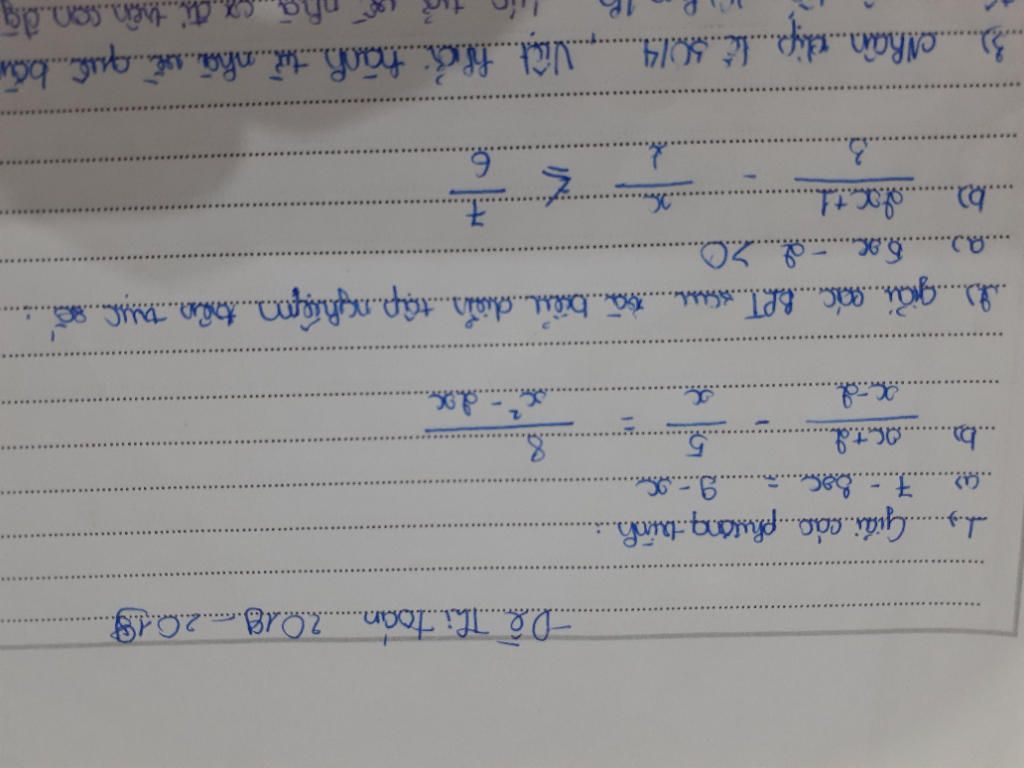 - Đề Thi toán 2018 - 2019
1) Giải các phương trình :
a) 7 - 3x = 9 - x
b) x+2 / x-2 - 5 / x = 8 / x² - 2x
2) giải các BPT sau và biểu diễn tập nghiệm trên trục số :
a) 5x - 2 > 0
b) 2x+1 / 3 - x / 2 ≤ 7 / 6
3) Nhân dịp lễ 30/4, Việt khởi hành từ nhà về quê
về nhà đi trên con